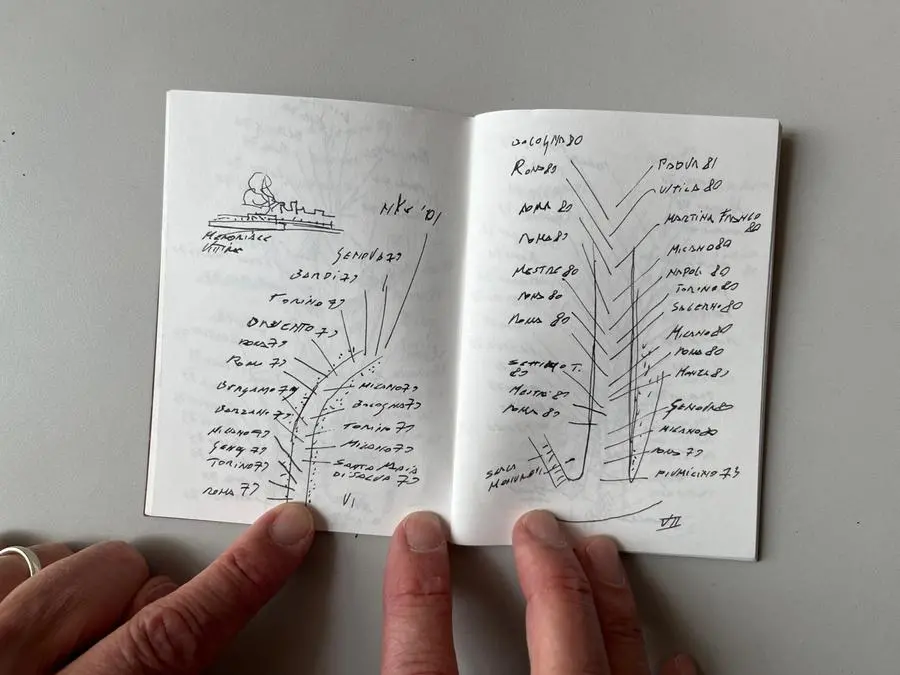 MEMORIALE
VITTIME
N.Y. '01
GENOVA 79
BARDI 79
TORINO 79
ROMA 79
ROMA 79
BERGAMO 79
MILANO 79
TORINO 79
ROMA 79
MILANO 79
BOLOGNA 79
TORINO 79
MILANO 79
SANTA MARIA
DI SALVA 79
VI
BOLOGNA 80
ROMA 80
ROMA 80
ROMA 80
MESTRE 80
ROMA 80
ROMA 80
SETTIMO T.
80
MESTRE 80
ROMA 80
SCALA
PADOVA 81
MARTINA FRANCA
80
MILANO 80
NAPOLI 80
TORINO 80
SALERNO 80
MILANO 80
ROMA 80
GENOVA 80
MILANO 80
ROMA 79
FIUMICINO 73
VII